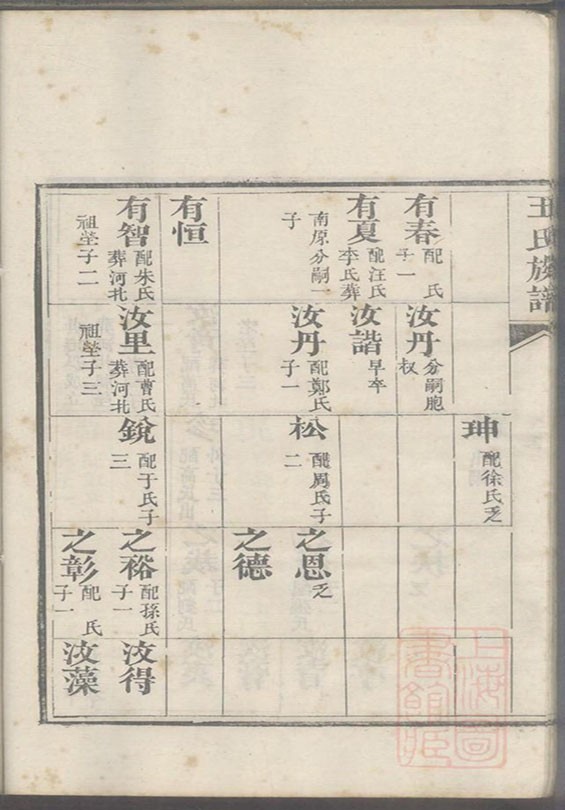 王氏族譜
珅 配徐氏乏
有春 配 氏
子一
汝丹 分嗣胞
叔
有夏 配汪氏
李氏葬
南原分嗣一
子
汝諧 早卒
汝丹 配鄭氏
子一
松 配周氏子
二
之恩 乏
之德
有恒
有智 配朱氏
葬河北
祖塋子二
汝里 配曹氏
葬河北
祖塋子三
銳 配于氏子
三
之裕 配孫氏
子一
汝得
之彰 配 氏
子一
汝藻
上海圖書館藏